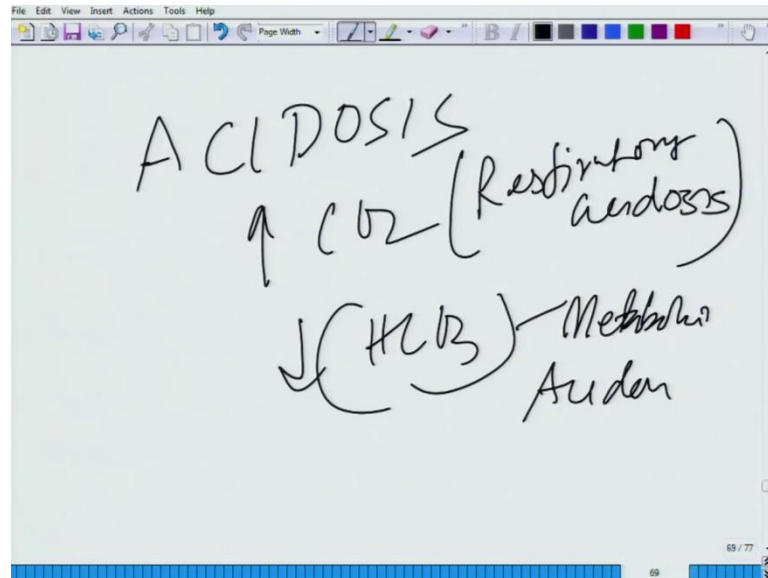 File Edit View Insert Actions Tools Help
Page Width
B I
ACIDOSIS
↑ CO2 (Respiratory
acidosis)
↓ (HCO3) - Metabolic
Acidosis
69 / 77
69